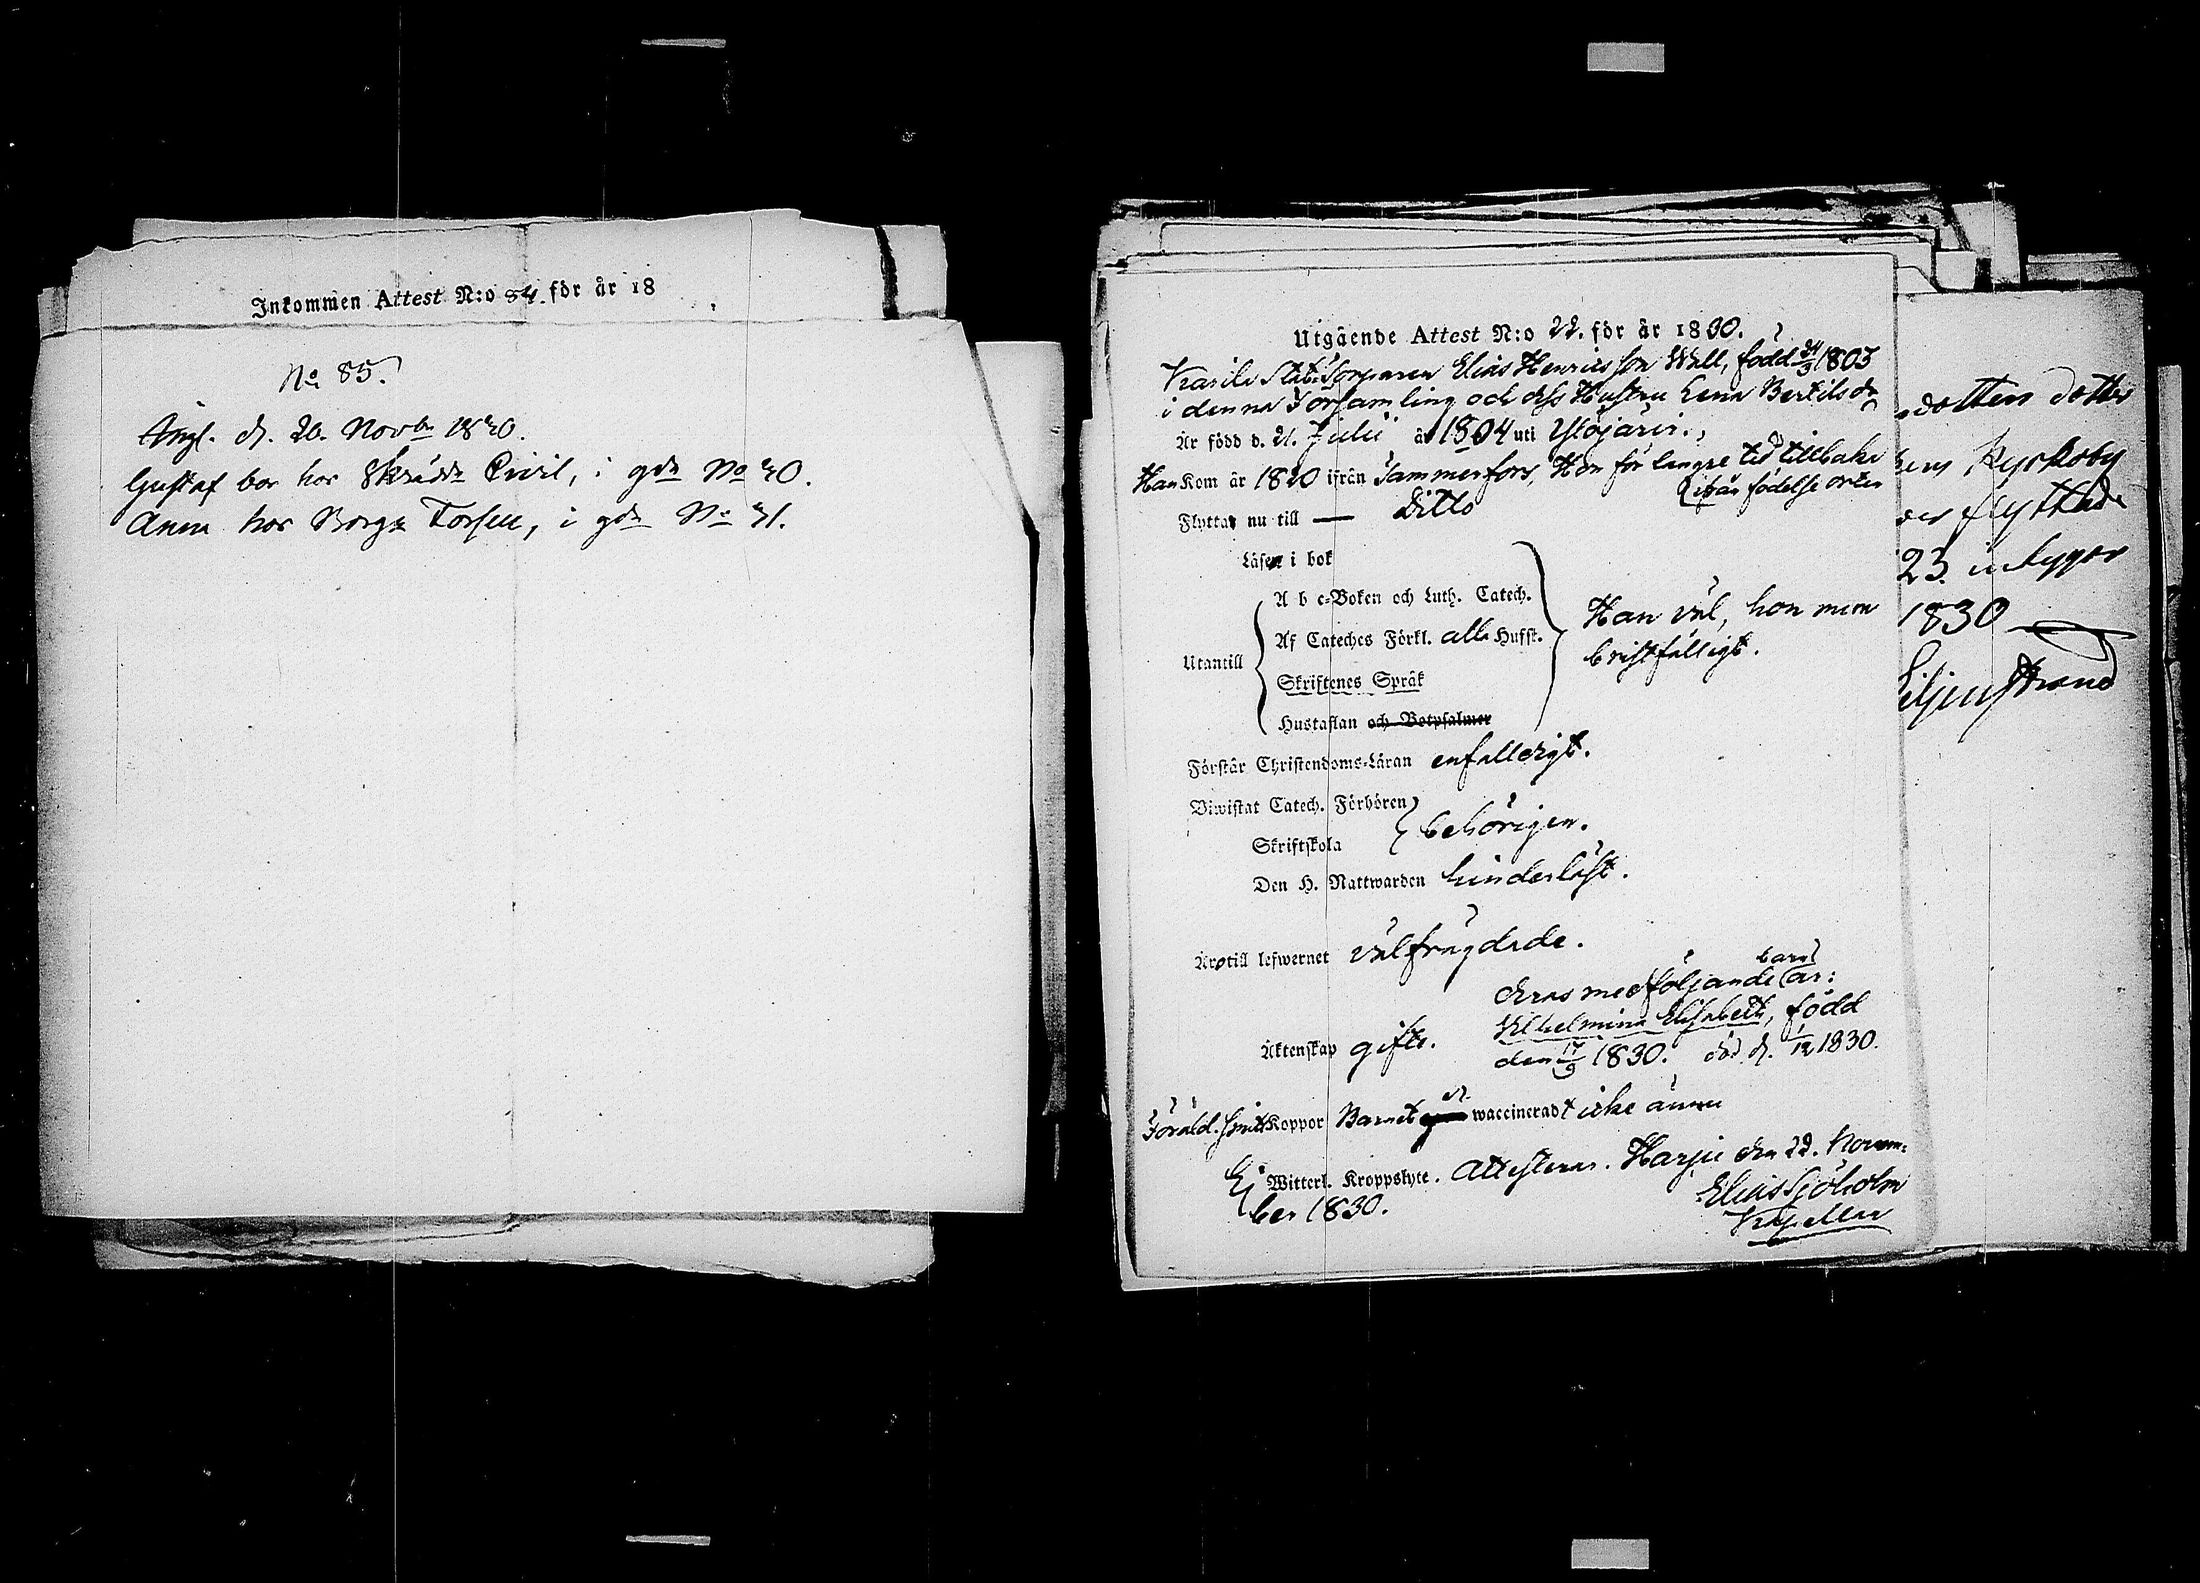 Inkommen Attest N:o 84. för år 18
No 85.
d. 20. Novbr 1830.
Gustaf bor hos Skrädd: Qvivil, i gdn No 40.
Anna hos Borg: Forsell, i gdn No 31.
Utgående Attest N:o 22. för år 1830.
Elias Henricsson Wall, född 24/3 1803
i denna Församling och dess Hustru Lena Bertilsdr
Är född d. 21. Julii år 1804 uti Ylöjärvi.,
Han Kom år 1820 ifrån Tammerfors, Hon för längre tid tillbaka
ifrån födelse orten
Flyttar nu till — Ditto
Läser i bok
A b c-Boken och Luth. Catech.
Af Cateches Förkl. alla Hufst.
Utantill
Skriftenes Språk
Hustaflan och Botpsalmer
Han väl, hon mera
bristfälligt.
Förstår Christendoms-Läran enfalldigt.
Biwistat Catech. Förhören
behörigen.
Skriftskola
Den H. Nattwarden hinderlöst.
Äro till lefwernet välfrägdade.
deras medföljande barn är:
Vilhelmina Elisabeth, född
Äktenskap gifte.
den 17/9 1830. död d. 1/12 1830.
Föräld. haft Koppor Barnet är waccineradt icke ännu
Ej Witterl. Kroppslyte. Attesterar. Harju den 22. Novem-
ber 1830.
Elias Sjöholm
Kapellan
dotters dotter
Kyrkoby
flyttade
23. intygar
1830
Liljenstrand